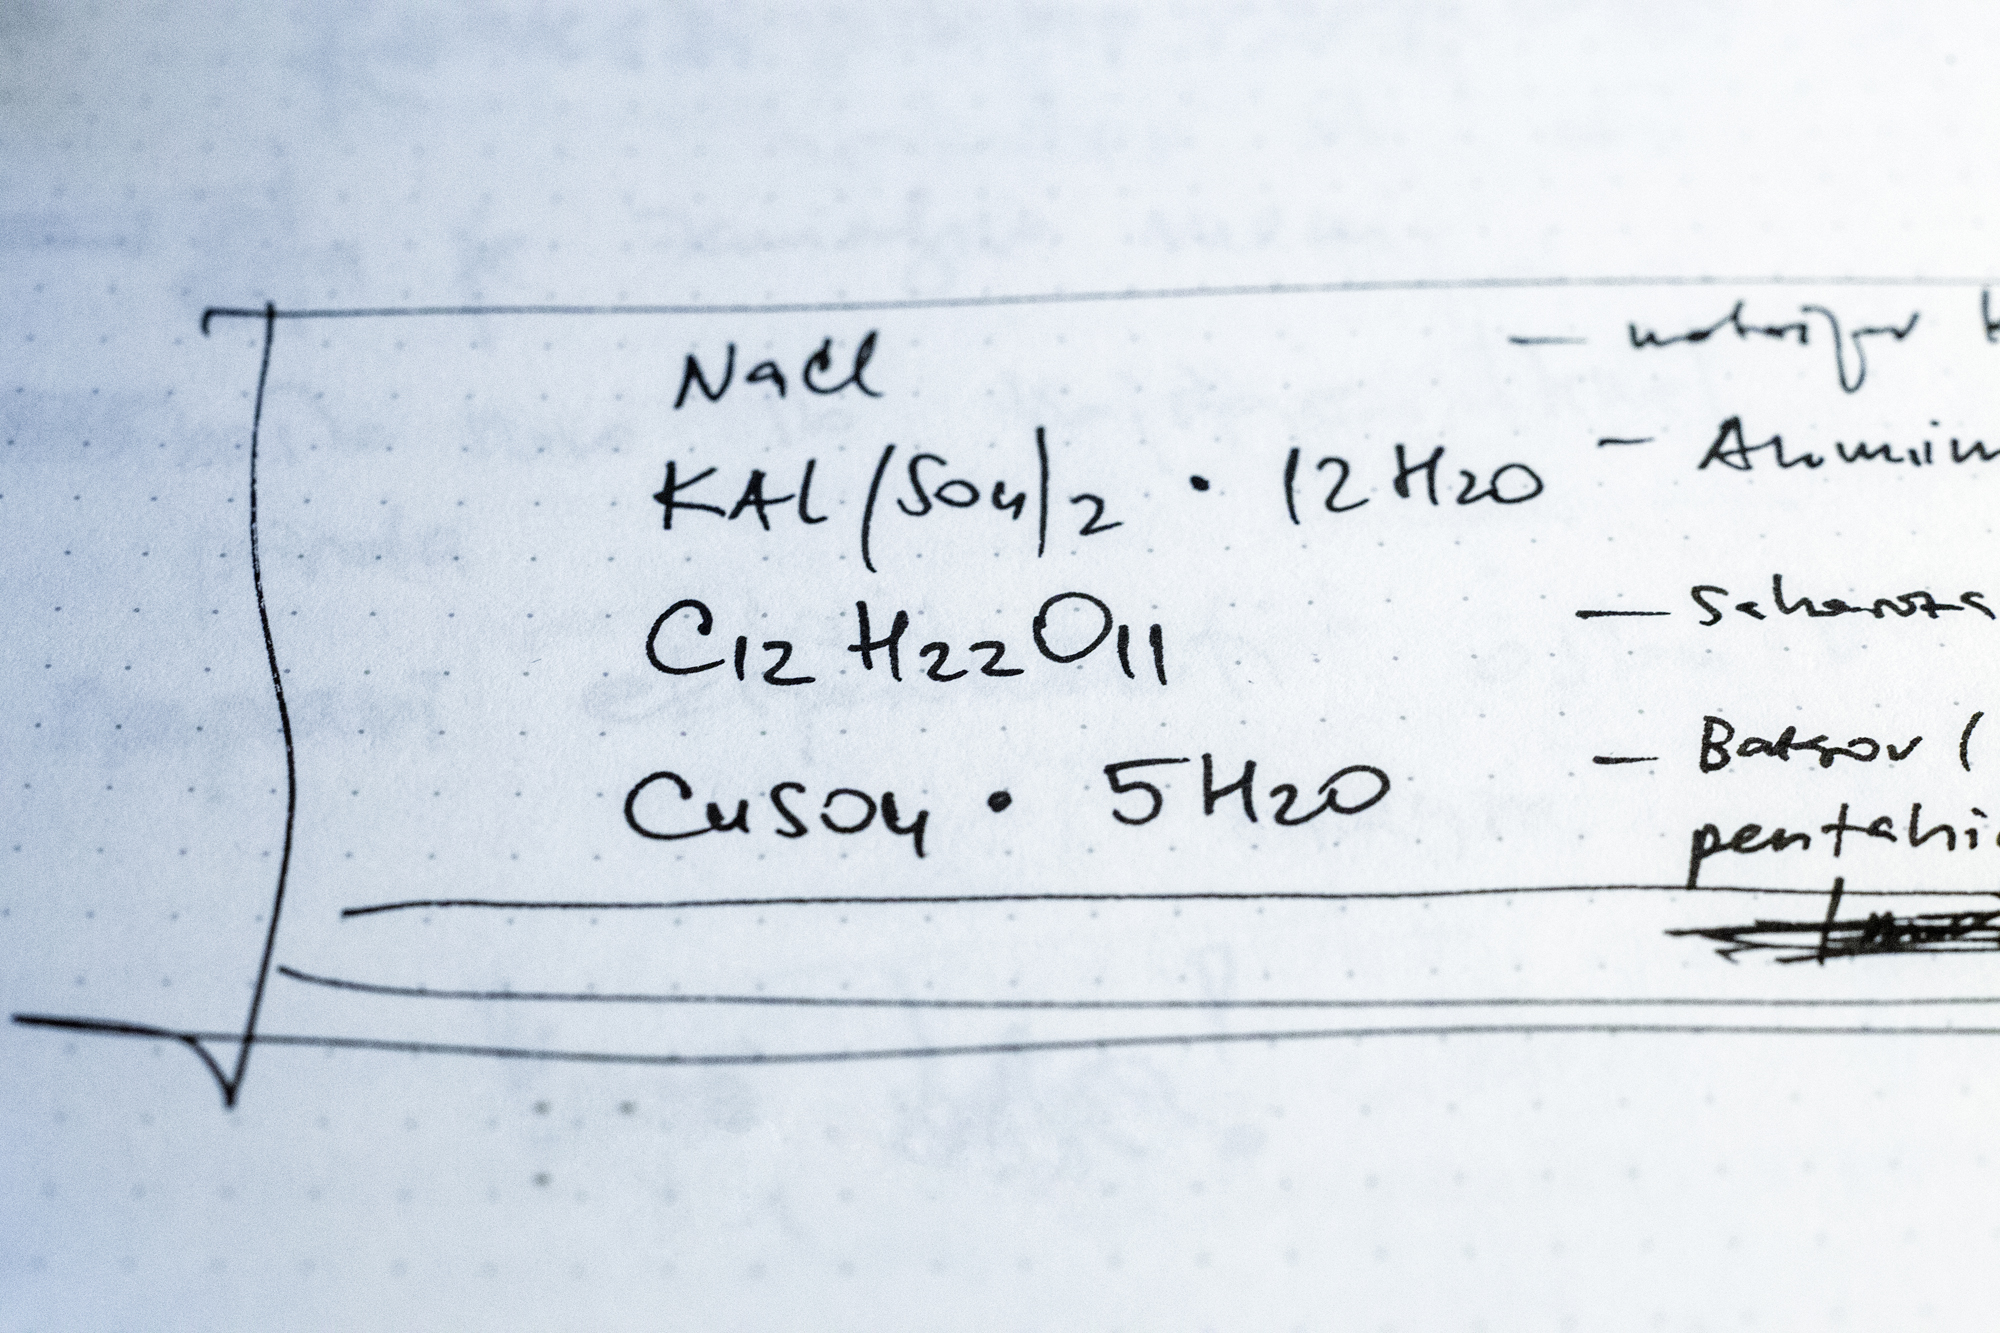 NaCl — natrijev
KAl(SO4)2 · 12H2O — Aluminij
C12H22O11 — Saharoza
CuSO4 · 5H2O — Bakrov (
pentahi